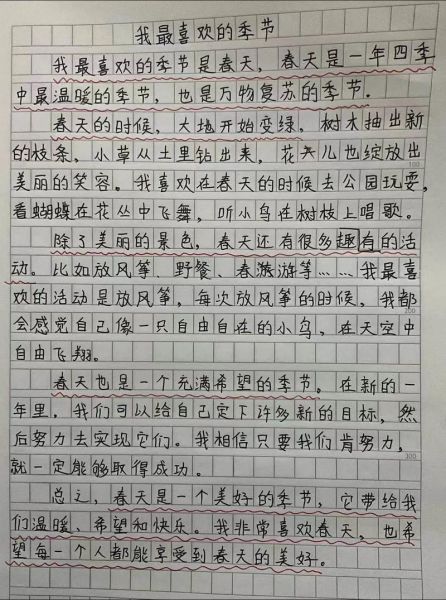 我最喜欢的季节
我最喜欢的季节是春天，春天是一年四季
中最温暖的季节，也是万物复苏的季节。
春天的时候，大地开始变绿，树木抽出新
的枝条，小草从土里钻出来，花儿也绽放出
美丽的笑容。我喜欢在春天的时候去公园玩耍，
看蝴蝶在花丛中飞舞，听小鸟在树枝上唱歌。
除了美丽的景色，春天还有很多趣有的活
动。比如放风筝、野餐、春游等……我最喜
欢的活动是放风筝，每次放风筝的时候，我都
会感觉自己像一只自由自在的小鸟，在天空中
自由飞翔。
春天也是一个充满希望的季节。在新的一
年里，我们可以给自己定下许多新的目标，然
后努力去实现它们。我相信只要我们肯努力，
就一定能够取得成功。
总之，春天是一个美好的季节，它带给我
们温暖、希望和快乐。我非常喜欢春天，也希
望每一个人都能享受到春天的美好。